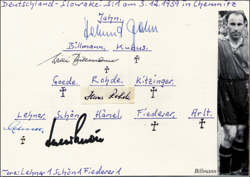 Deutschland-Slowakei 3:1 am 3.12.1939 in Chemnitz
Jahn.
Billmann. Kubus.
Goede. Rohde. Kitzinger.
Hans Rohde
Lehner Schön Hänel. Fiederer. Arlt.
Tore: Lehner 1 Schön 1 Fiederer 1
Billmann